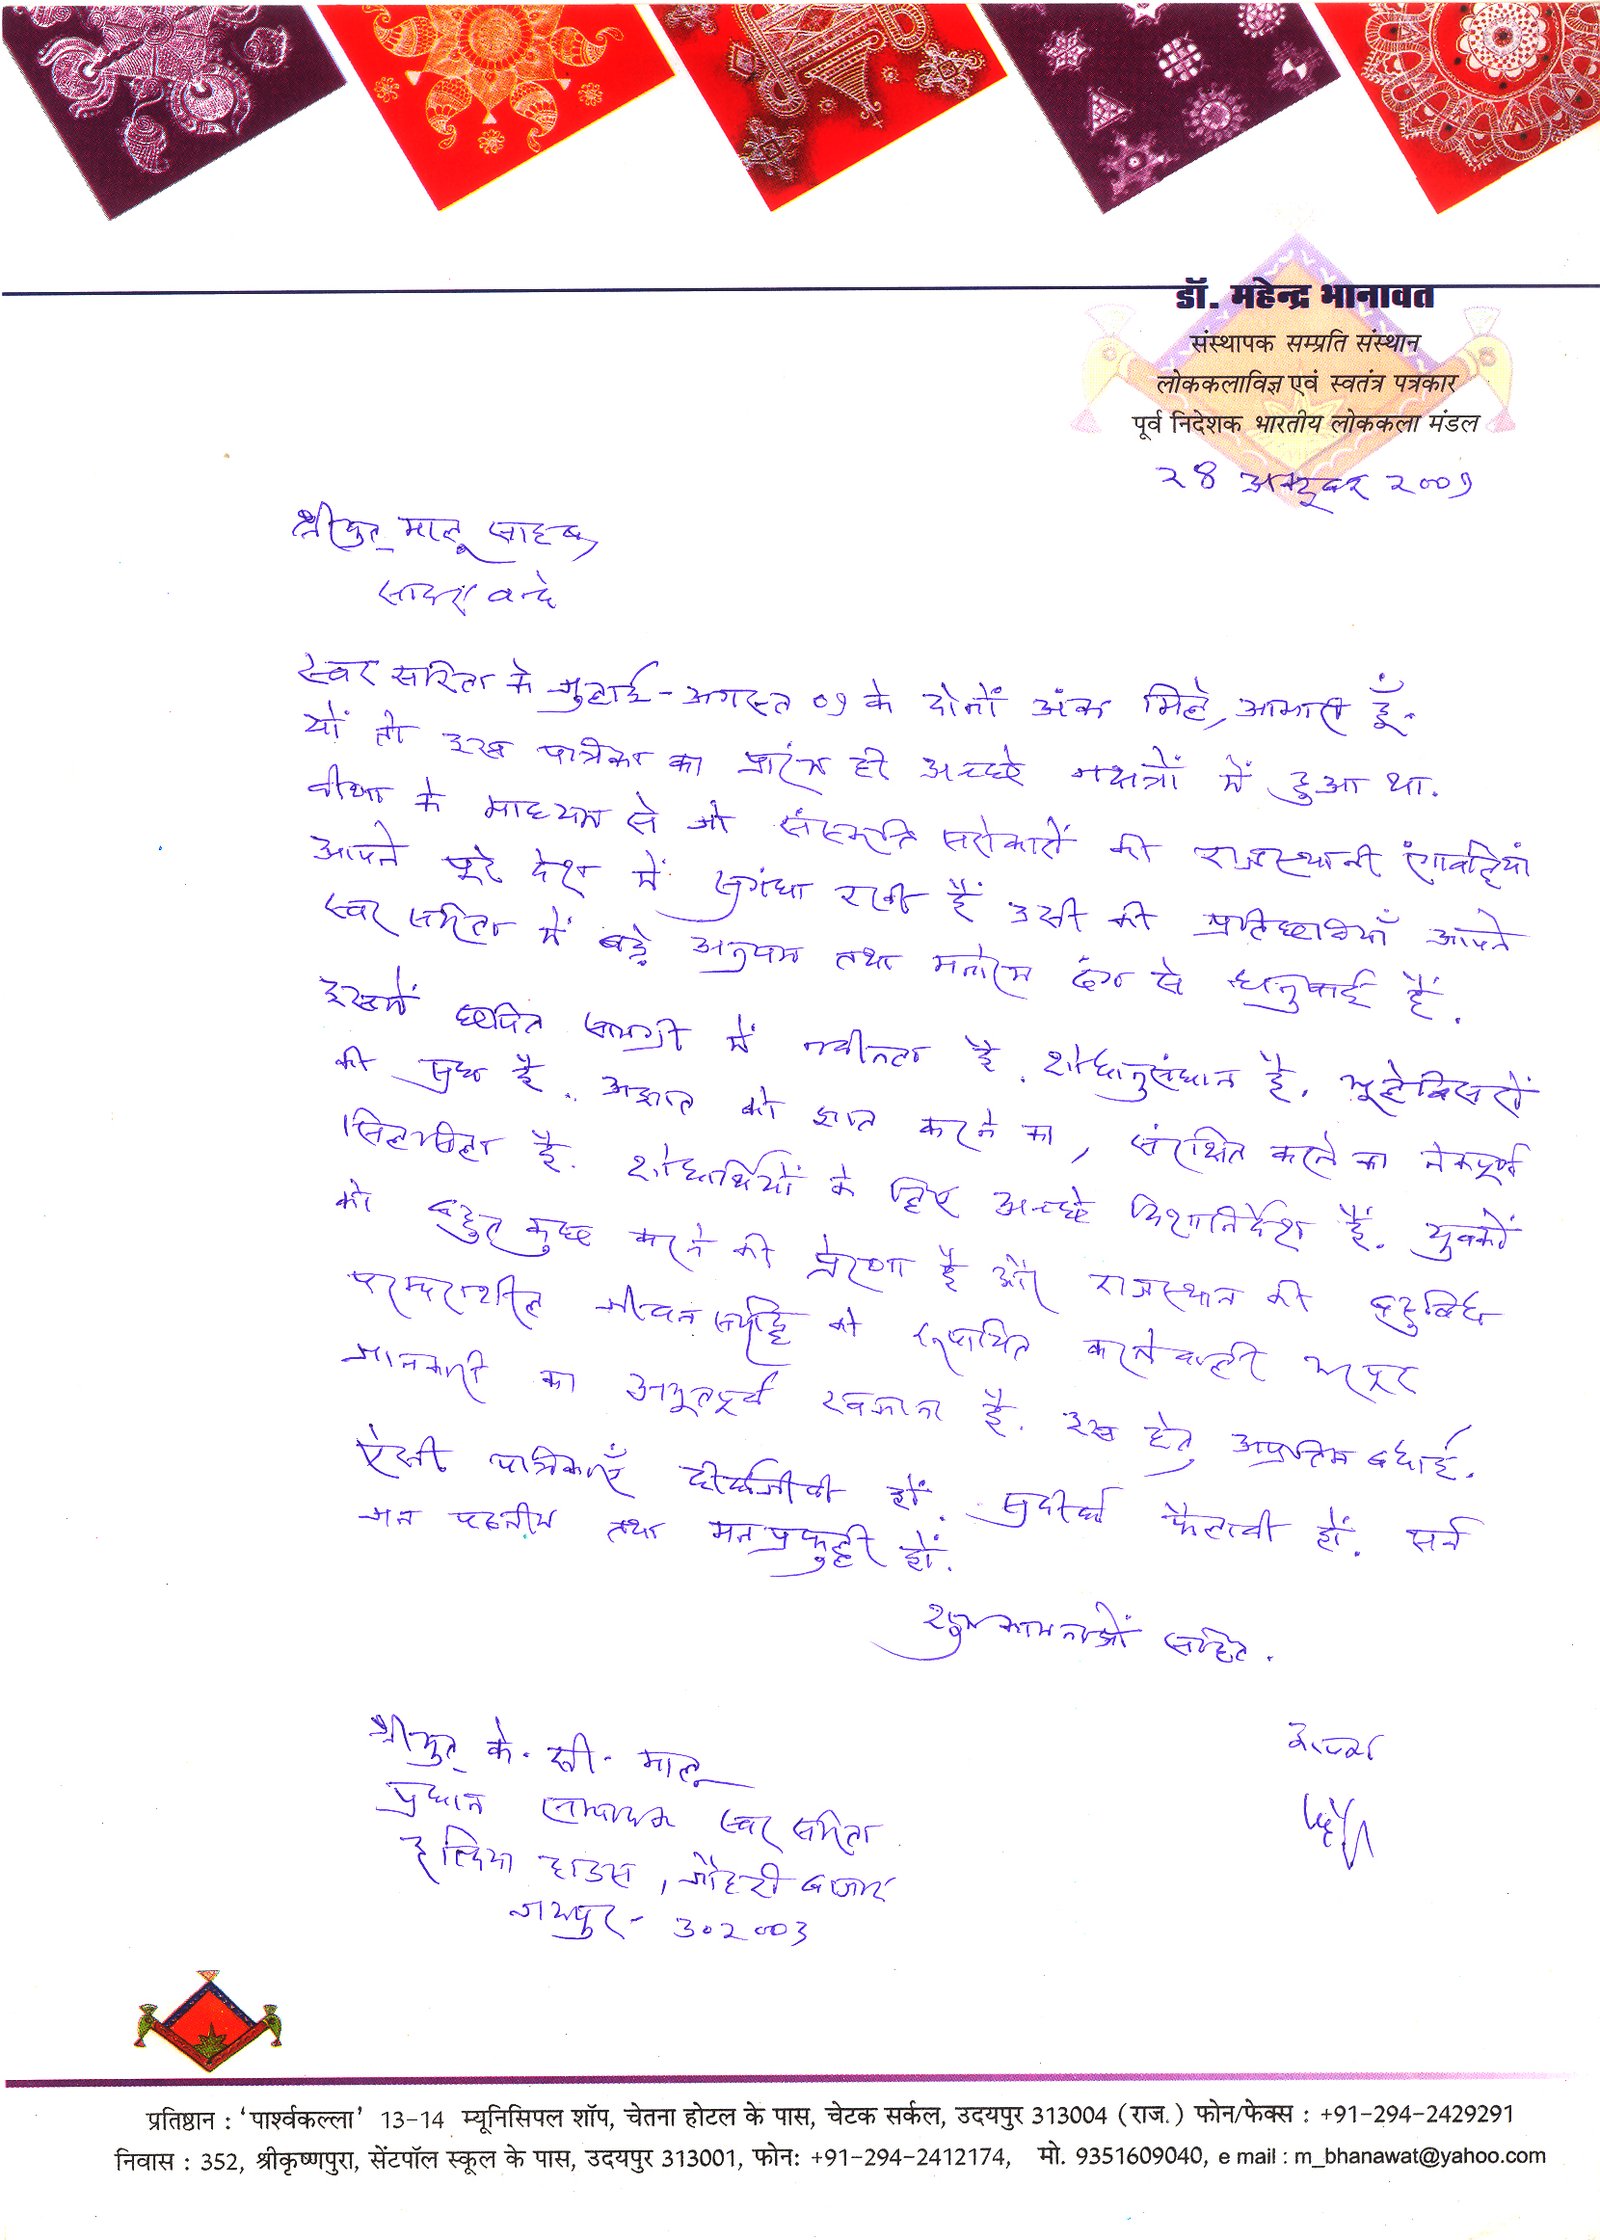 डॉ. महेन्द्र भानावत
संस्थापक सम्प्रति संस्थान
लोककलाविज्ञ एवं स्वतंत्र पत्रकार
पूर्व निदेशक भारतीय लोककला मंडल
28 अक्टूबर 2009
श्रीयुत् मालू साहब,
सादर वन्दे
स्वर सरिता के जुलाई-अगस्त 09 के दोनों अंक मिले, आभारी हूँ.
यों तो इस पत्रिका का प्रारंभ ही अच्छे नक्षत्रों में हुआ था.
वीणा के माध्यम से जो संस्कृति सरोकारों की राजस्थानी रंगावलियां
आपने पूरे देश में सुगंधा रखी हैं उसी की प्रतिछवियाँ आपने
स्वर सरिता में बड़े अनुपम तथा मनोरम ढंग से हैं.
इसमें छपित सामग्री में नवीनता है. शोधानुसंधान है. भूलेबिसरों
की सुध है. अज्ञात को ज्ञात करने का, संरक्षित करने का नेकपूर्ण
सिलसिला है. शोधार्थियों के लिए अच्छे दिशानिर्देश हैं. युवकों
को बहुत कुछ करने की प्रेरणा है और राजस्थान की बहुविध
परम्पराशील जीवन को रूपायित करनेवाली भरपूर
जानकारी का अभूतपूर्व खजाना है. इस हेतु अप्रतिम बधाई.
ऐसी पत्रिकाएँ दीर्घजीवी हों. सुदीर्घ फैलावी हों. सर्व
जन पठनीय तथा मनप्रफुल्ली हों.
शुभकामनाओं सहित.
श्रीयुत् के. सी. मालू
प्रधान सम्पादक स्वर सरिता
हल्दिया हाउस, जौहरी बाजार
जयपुर - 302003
प्रतिष्ठान : 'पार्श्वकल्ला' 13-14 म्यूनिसिपल शॉप, चेतना होटल के पास, चेटक सर्कल, उदयपुर 313004 (राज.) फोन/फेक्स : +91-294-2429291
निवास : 352, श्रीकृष्णपुरा, सेंटपॉल स्कूल के पास, उदयपुर 313001, फोन: +91-294-2412174, मो. 9351609040, e mail : m_bhanawat@yahoo.com